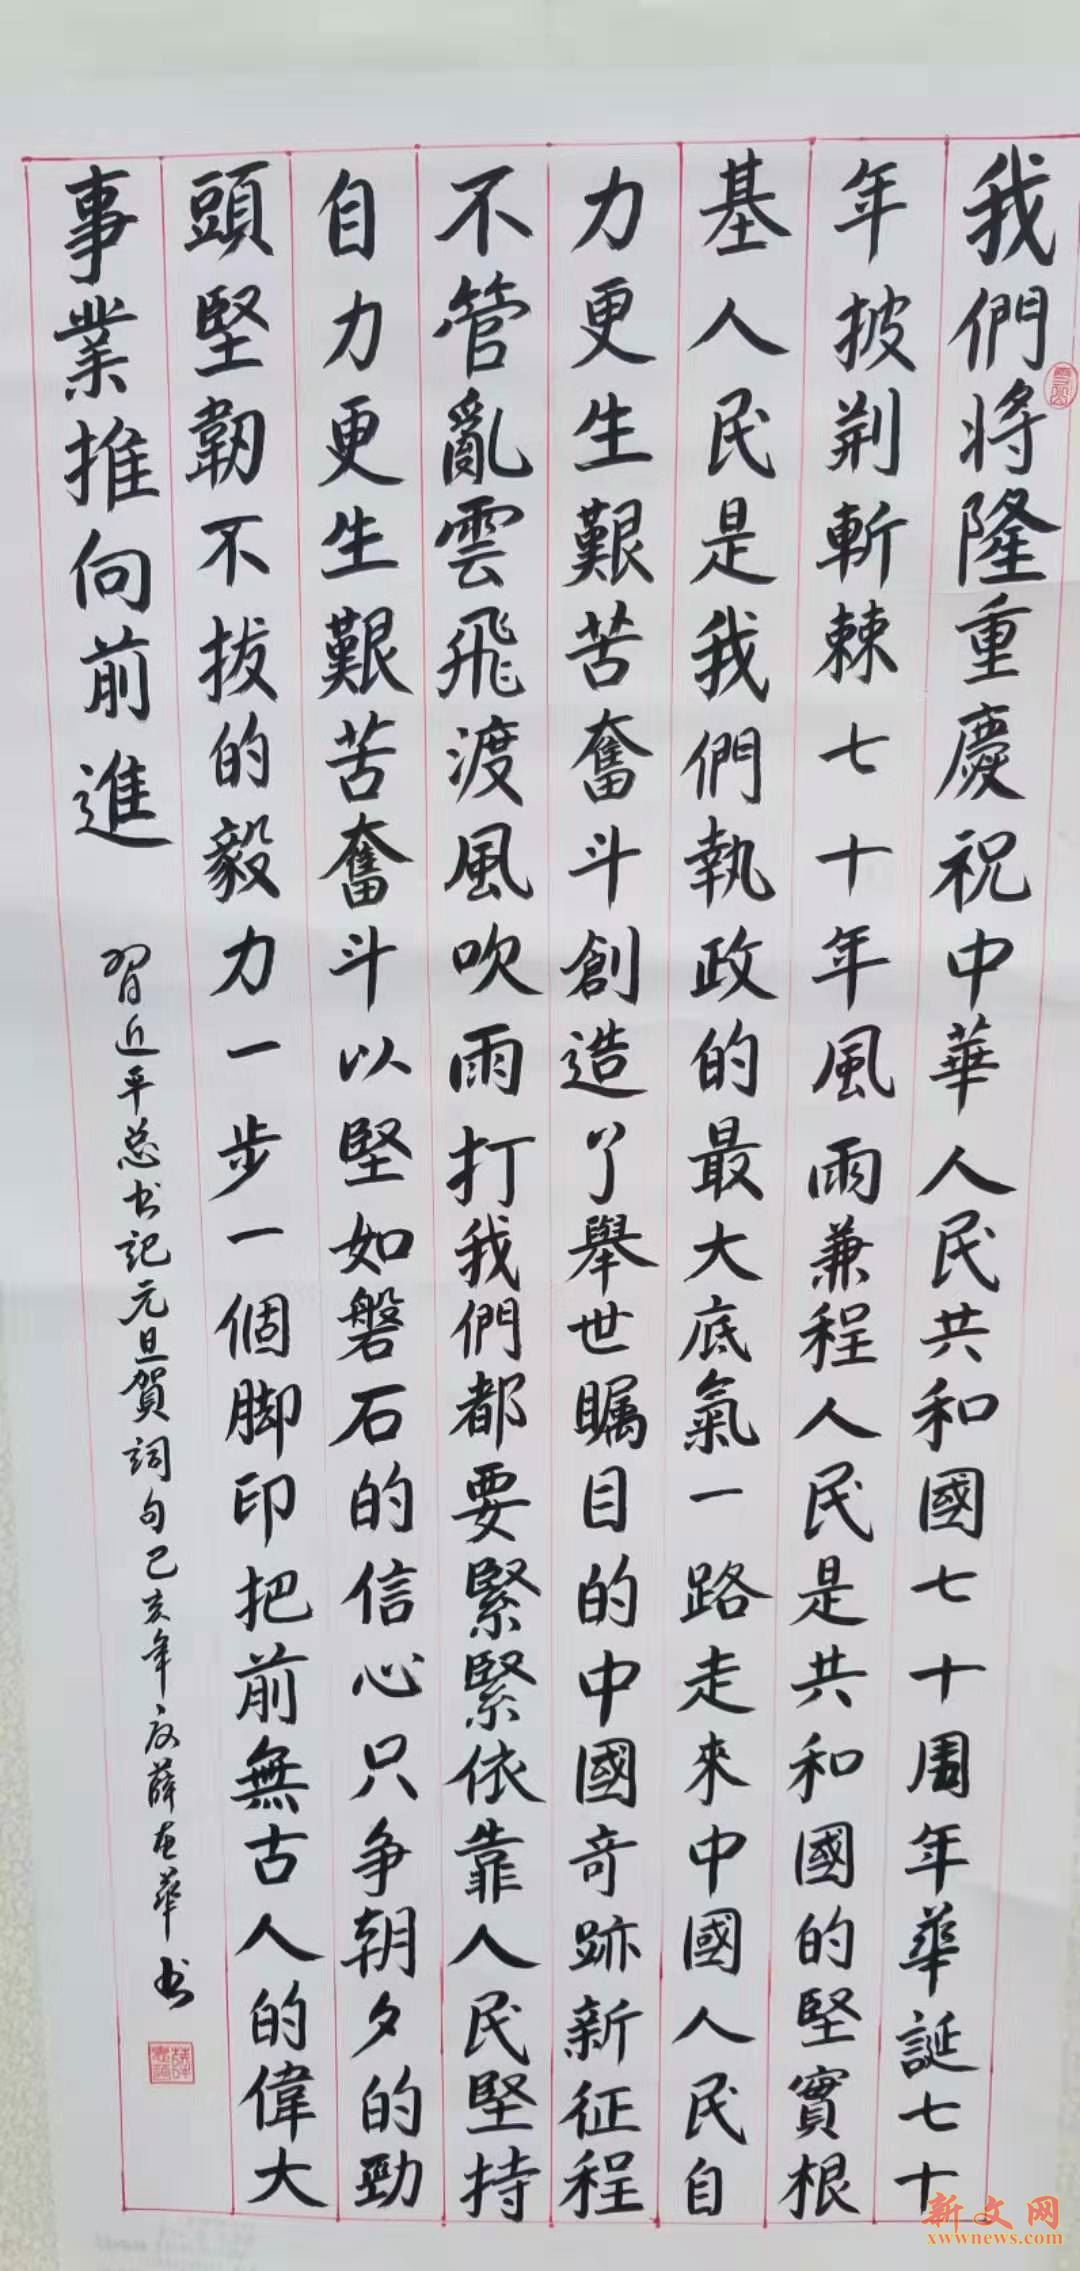 我們將隆重慶祝中華人民共和國七十周年華誕七十
年披荆斬棘七十年風雨兼程人民是共和國的堅實根
基人民是我們執政的最大底氣一路走來中國人民自
力更生艱苦奮斗創造了舉世矚目的中國奇跡新征程
不管亂雲飛渡風吹雨打我們都要緊緊依靠人民堅持
自力更生艱苦奮斗以堅如磐石的信心只争朝夕的勁
頭堅韌不拔的毅力一步一個脚印把前無古人的偉大
事業推向前進
習近平总书記元旦賀詞句己亥年 薛 華书
新文网
xwwnews.com